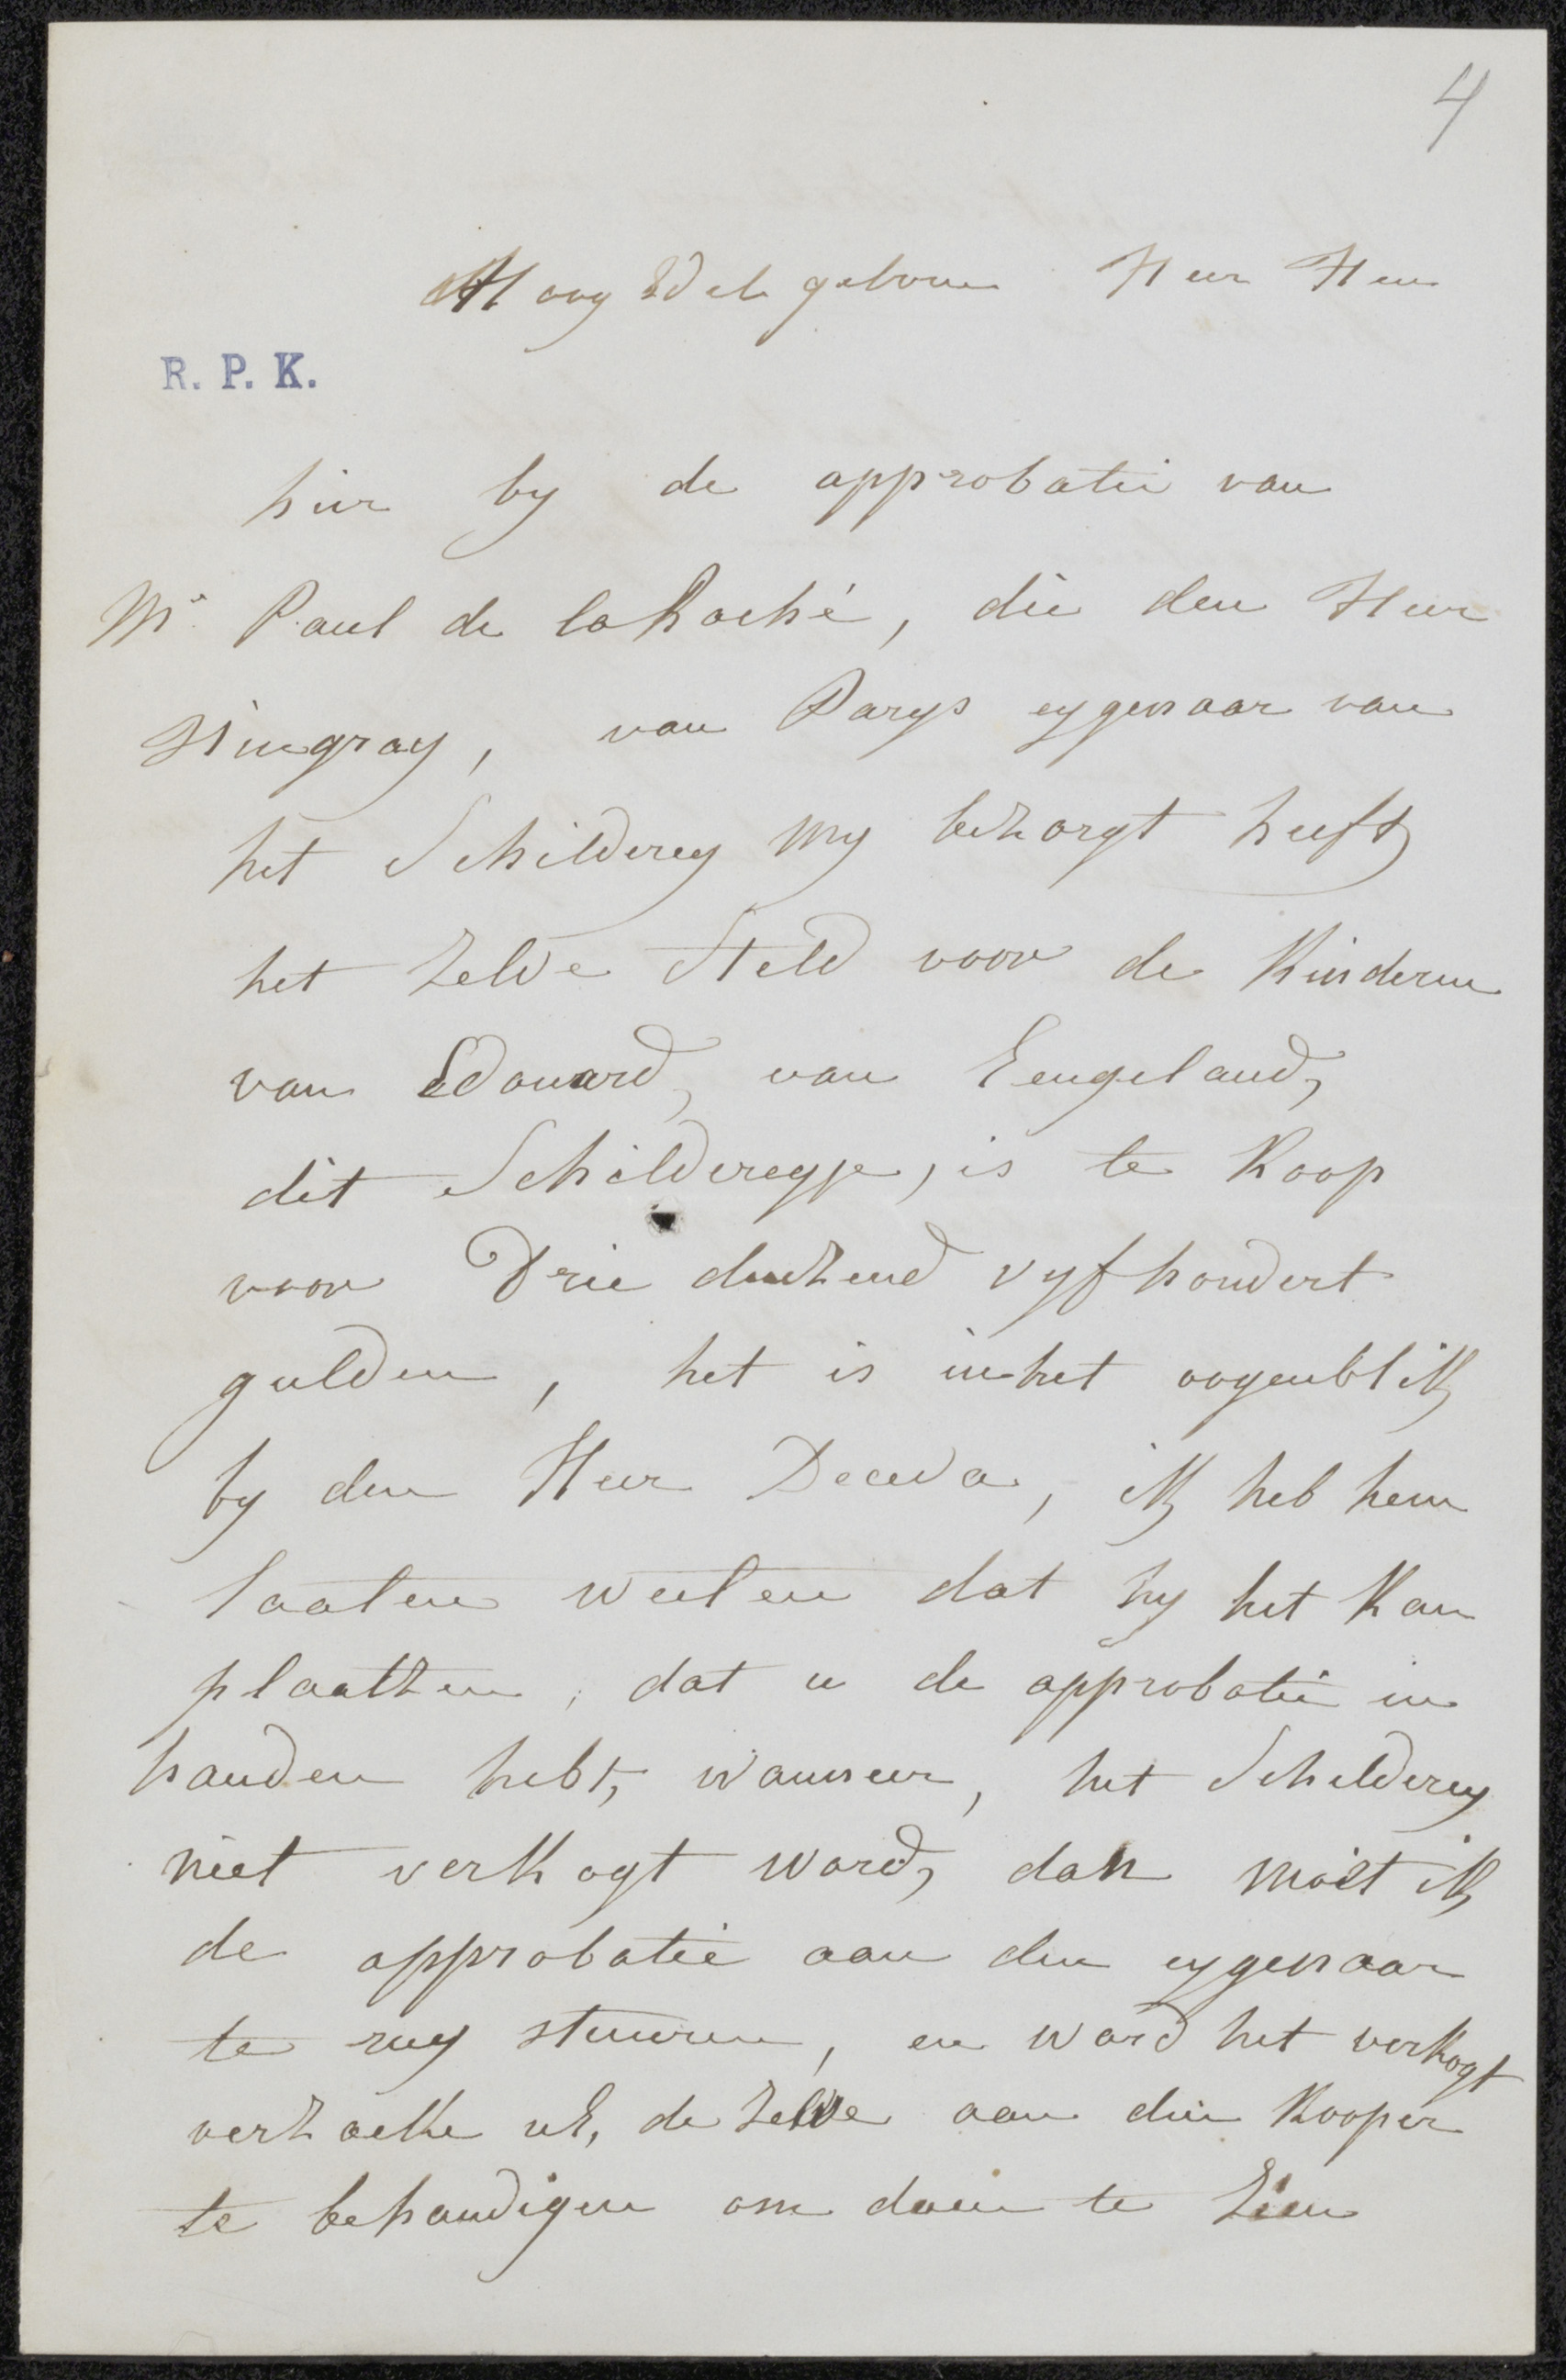 4
Hoog Edel geboren Heer Heer
R. P. K.
hier by de approbatie van
Mr. Paul de laRoché, die den Heer
Hingray, van Parys eygenaar van
het Schilderey my bezorgt heeft
het zelve Steld voor de Kinderen
van Edouard, van Eengeland,
dit Schildereyje, is te Koop
voor Drie duizend vyf hondert
gulden, het is in het oogenblik
by den Heer ik heb hem
laaten weeten dat hy het Kan
plaatzen, dat u de approbatie in
handen hebt, wanneer, het Schilderey
niet verkogt word, dan moet ik
de approbatie aan den eygenaar
te rug stuuren, en word het verkogt
verzoeke ul, de zelve aan dien Kooper
te behandigen om doen te zien